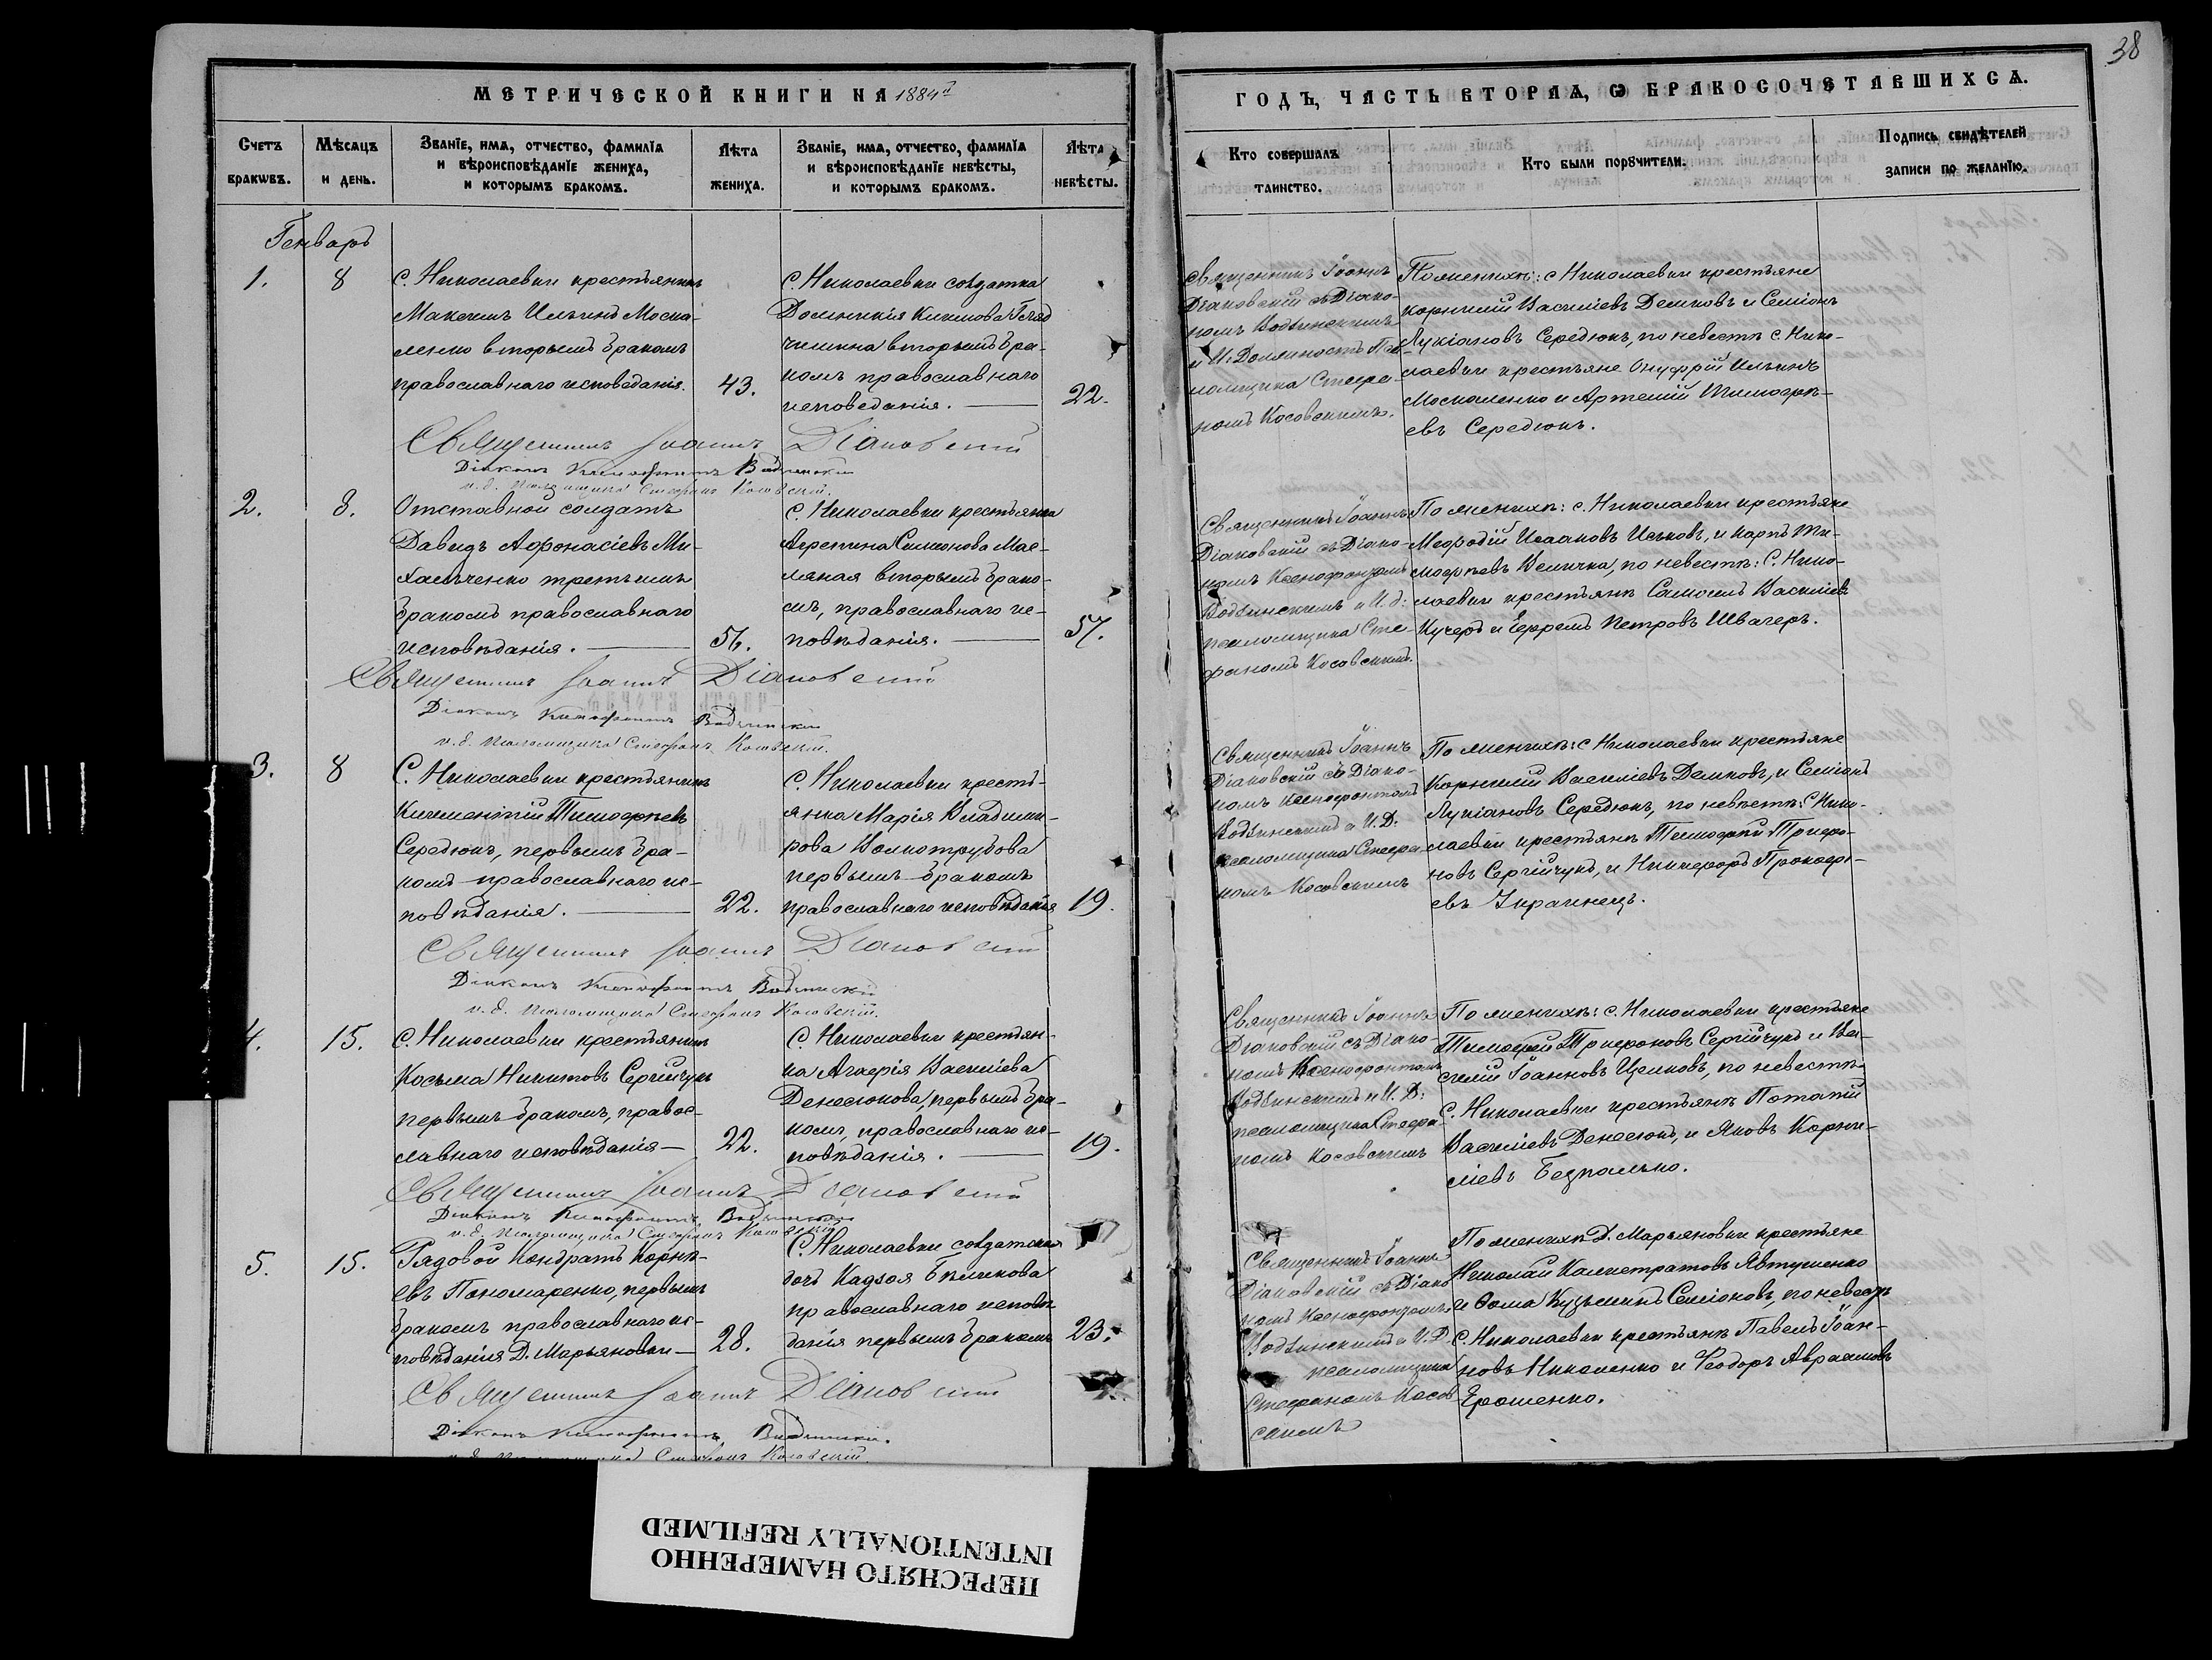 38
МЕТРИЧЕСКОЙ КНИГИ НА 1884й
ГОДЪ, ЧАСТЬ ВТОРАѦ, Ѡ БРАКОСОЧЕТАВШИХСѦ.
Счетъ браковъ.
Мѣсѧцъ и день.
Званїе, имѧ, отчество, фамилїѧ
и вѣроисповѣданїе жениха,
и которымъ бракомъ.
Лѣта
жениха.
Званїе, имѧ, отчество, фамилїѧ
и вѣроисповѣданїе невѣсты,
и которымъ бракомъ.
Лѣта
невѣсты.
Кто совершалъ
таинство.
Кто были порꙋчители.
Подпись свидѣтелей
записи по желанїю.
Генварь
1.
8
С. Николаевки крестьянинъ
Максимъ Ильинъ Моска-
ленко вторымъ бракомъ
православнаго исповеданія.
43.
С. Николаевки солдатка
вторымъ бра-
комъ православнаго
исповеданія.
22.
Священникъ Іоаннъ
Діаковскій съ Діако-
номъ Водзинскимъ
и И. Должность Пса-
ломщика Стефа-
номъ Косовскимъ.
По женихѣ: с. Николаевки крестьяне
Корнилій Василіевъ Демковъ и Семіонъ
Лукіановъ Середюкъ, по невестѣ с. Нико-
лаевки крестьяне Онуфрій Ильинъ
Москаленко и Артемій Тимофѣ-
евъ Середюкъ.
Священникъ Іоаннъ Діаковскій
Діаконъ Ксенофонтъ Водзинскій
и. д. Псаломщика Стефанъ Косовскій.
2.
8.
Отставной солдатъ
Давидъ Афонасіевъ Ми-
хальченко третьимъ
бракомъ православнаго
исповѣданія.
56.
С. Николаевки крестьянка
Агрепина Симонова Мас-
ляная вторымъ брако-
мъ, православнаго ис-
повѣданія.
57.
Священникъ Іоаннъ
Діаковскій съ Діако-
номъ Ксенофонтомъ
Водзинскимъ и И. д.
псаломщика Сте-
фаномъ Косовскимъ.
По женихѣ: с. Николаевки крестьяне
Мефодій Исааковъ Ивковъ, и Карпъ Ти-
мофѣевъ Величко, по невестѣ: С. Нико-
лаевки крестьянѣ Самоилъ Василіевъ
Кучеръ и Ефремъ Петровъ Швагеръ.
Священникъ Іоаннъ Діаковскій
Діаконъ Ксенофонтъ Водзинскій
и. д. Псаломщика Стефанъ Косовскій.
3.
8
С. Николаевки крестьянинъ
Климентій Тимофѣевъ
Середюкъ, первымъ бра-
комъ православнаго ис-
повѣданія.
22.
С. Николаевки кресть-
янка Марія Владими-
рова Волкотрубова
первымъ бракомъ
православнаго исповѣданія
19.
Священникъ Іоаннъ
Діаковскій съ Діако-
номъ Ксенофонтомъ
Водзинскимъ и И. Д.
псаломщика Стефа-
номъ Косовскимъ
По женихѣ: с Николаевки крестьяне
Корнилій Василіевъ Демковъ, и Семіонъ
Лукіановъ Середюкъ, по невѣстѣ: С Нико-
лаевки крестьянѣ Тимофей Трифо-
новъ Сергійчукъ, и Никифоръ Прокофі-
евъ Украинецъ.
Священникъ Іоаннъ Діаковскій
Діаконъ Ксенофонтъ Водзинскій
и. д. Псаломщика Стефанъ Косовскій.
4.
15.
С. Николаевки крестьянинъ
Косьма Никитовъ Сергійчукъ
первымъ бракомъ, правос-
лавнаго исповѣданія
22.
С. Николаевки крестьян-
ка Агафія Василіева
Денесюкова, первымъ бра-
комъ, православнаго ис-
повѣданія.
19.
Священникъ Іоаннъ
Діаковскій съ Діако-
номъ Ксенофонтомъ
Водзинскимъ и И. Д.
псаломщика Стефа-
номъ Косовскимъ
По женихѣ: с. Николаевки крестьяне
Тимофей Трифоновъ Сергійчукъ и Ва-
силій Іоанновъ Цимковъ, по невестѣ
С. Николаевки крестьянѣ Потапій
Василіевъ Денесюкъ, и Яковъ Корни-
ліевъ Безпалько.
Священникъ Іоаннъ Діаковскій
Діаконъ Ксенофонтъ Водзинскій
и. д. Псаломщика Стефанъ Косовскій
5.
15.
Рядовой Кондратъ Корнѣ-
евъ Пономаренко, первымъ
бракомъ православнаго ис-
повѣданія Д. Марьяновки
28.
С. Николаевки солдатская
дочь
православнаго исповѣ
данія первымъ бракомъ
23.
Священникъ Іоаннъ
Діаковскій съ Діако
номъ Ксенофонтомъ
Водзинскимъ и И. Д.
псаломщика
Стефаномъ Косов
скимъ
По женихѣ Д. Марьяновки крестьяне
Николай Калистратовъ Явтушенко
и Ѳома Кузьминъ Семіоновъ, по невестѣ
С. Николаевки крестьянѣ Павелъ Іоан-
новъ Николенко и Феодоръ Авраамовъ
Ерошенко.
Священникъ Іоаннъ Діаковскій
Діаконъ Ксенофонтъ Водзинскій.
и. д. Псаломщика Стефанъ Косовскій.
ПЕРЕСНЯТО НАМЕРЕННО
INTENTIONALLY REFILMED